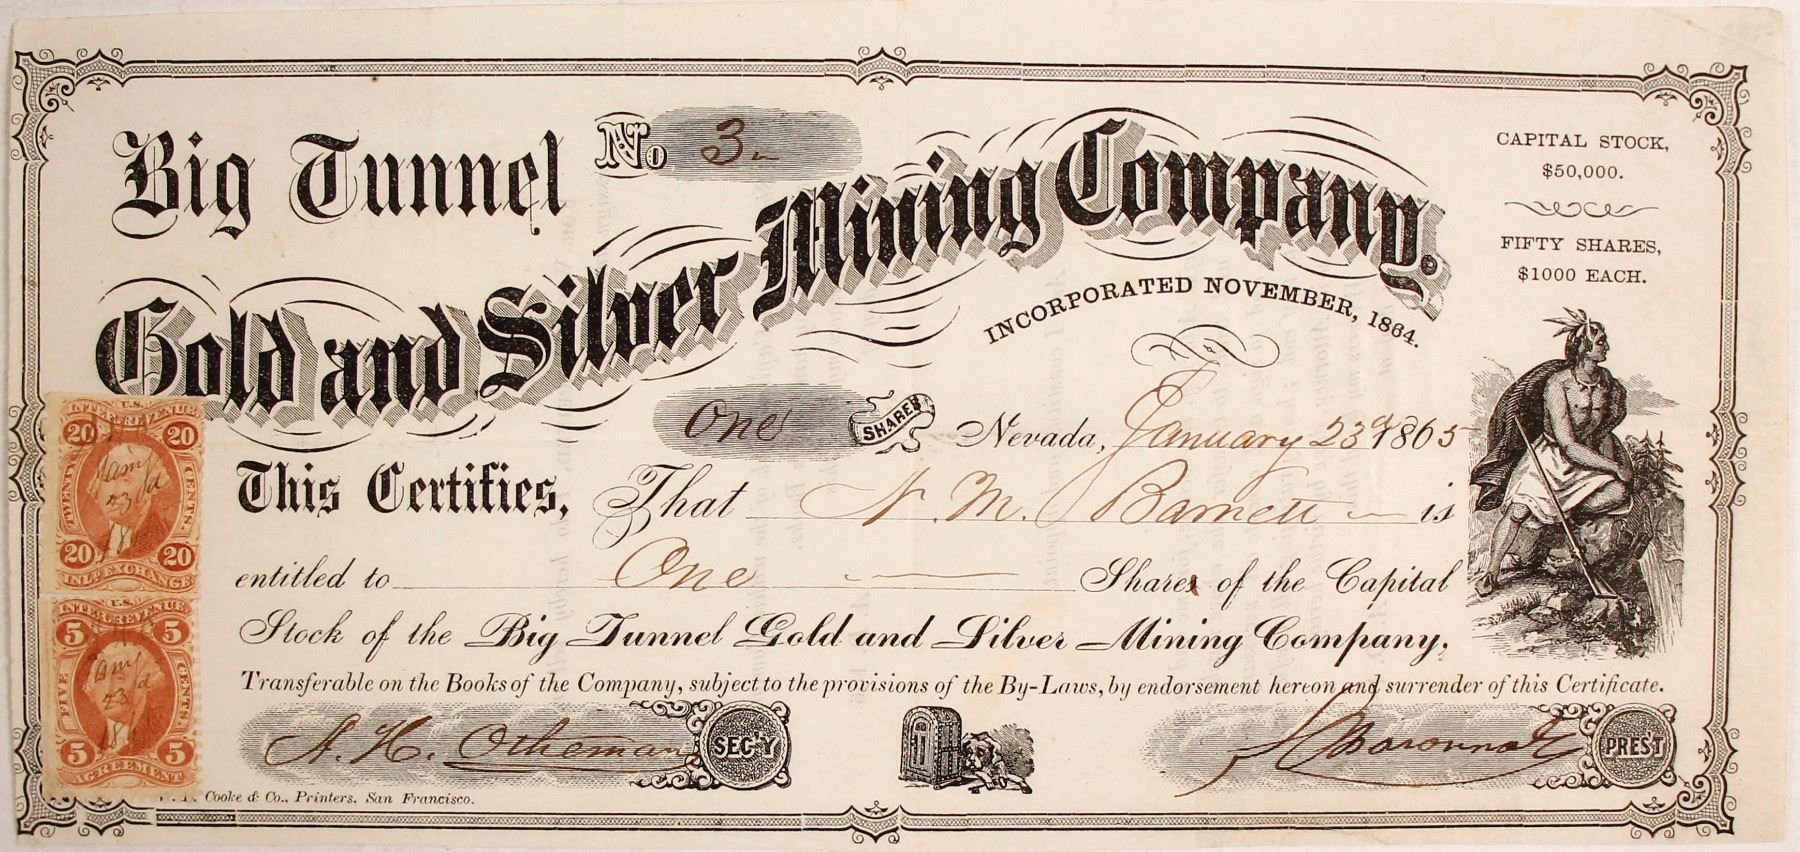 Big Tunnel
No. 3
Gold and Silver Mining Company.
INCORPORATED NOVEMBER, 1864.
CAPITAL STOCK,
$50,000.
FIFTY SHARES,
$1000 EACH.
One SHARES
Nevada, January 23d 1865
This Certifies, That N. M. Barnett is
entitled to One Shares of the Capital
Stock of the Big Tunnel Gold and Silver Mining Company,
Transferable on the Books of the Company, subject to the provisions of the By-Laws, by endorsement hereon and surrender of this Certificate.
A. H. Otheman SEC'Y
PRES'T
Cooke & Co., Printers, San Francisco.
U.S.
INTER. REVENUE
20 20
TWENTY CENTS.
23d
20 20
INL. EXCHANGE
U.S.
INTER. REVENUE
5 5
FIVE CENTS.
23d
5 5
AGREEMENT